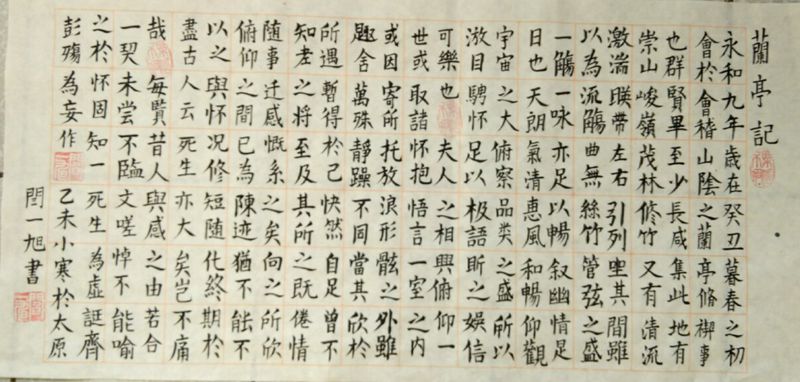 蘭亭記
永和九年歲在癸丑暮春之初
會於會稽山陰之蘭亭脩禊事
也群賢畢至少長咸集此地有
崇山峻嶺茂林修竹又有清流
激湍暎帶左右引列坐其間雖
以為流觴曲無絲竹管弦之盛
一觴一咏亦足以暢叙幽情足
日也天朗氣清惠風和暢仰觀
宇宙之大俯察品类之盛所以
遊目騁怀足以极語之娱信
可樂也夫人之相與俯仰一
世或取諸怀抱悟言一室之内
或因寄所托放浪形骸之外雖
趣舍萬殊靜躁不同當其欣於
所遇暫得於己快然自足曾不
知老之将至及其所之既倦情
随事迁感慨系之矣向之所欣
俯仰之間已為陳迹猶不能不
以之興怀况修短随化終期於
盡古人云死生亦大矣岂不痛
哉每覧昔人興感之由若合
一契未尝不臨文嗟悼不能喻
之於怀固知一死生為虛誕齊
彭殤為妄作
乙未小寒於太原
閆一旭書